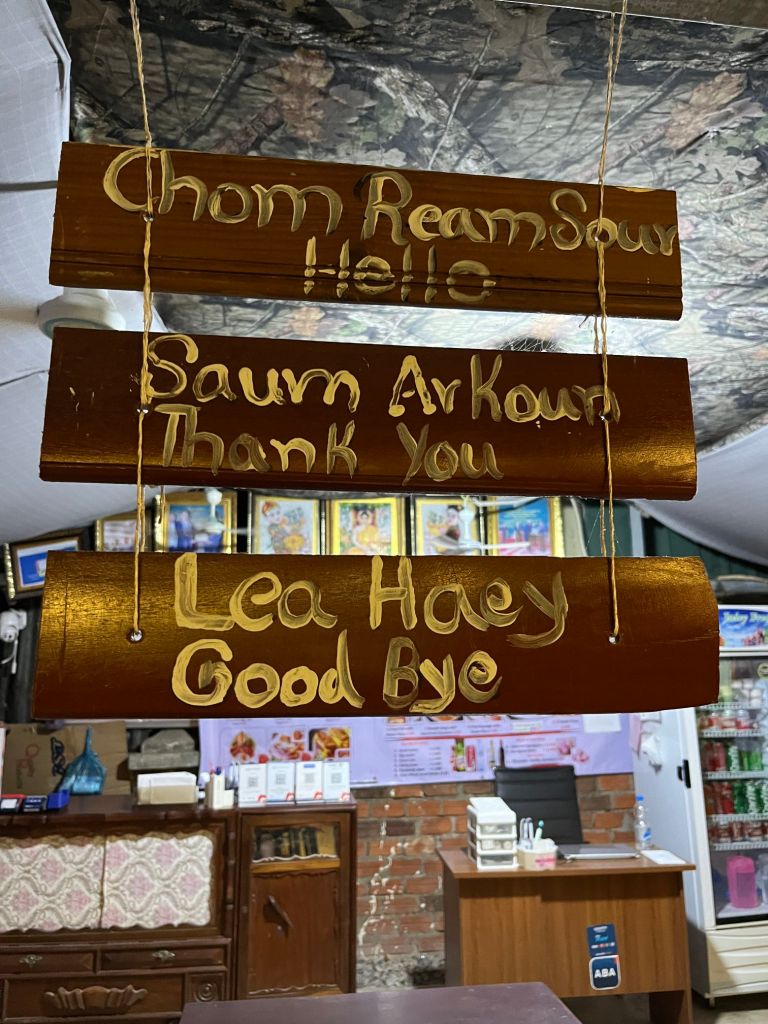 Chom Ream Sour
Hello
Saum Ar Koun
Thank You
Lea Haey
Good Bye
ABA